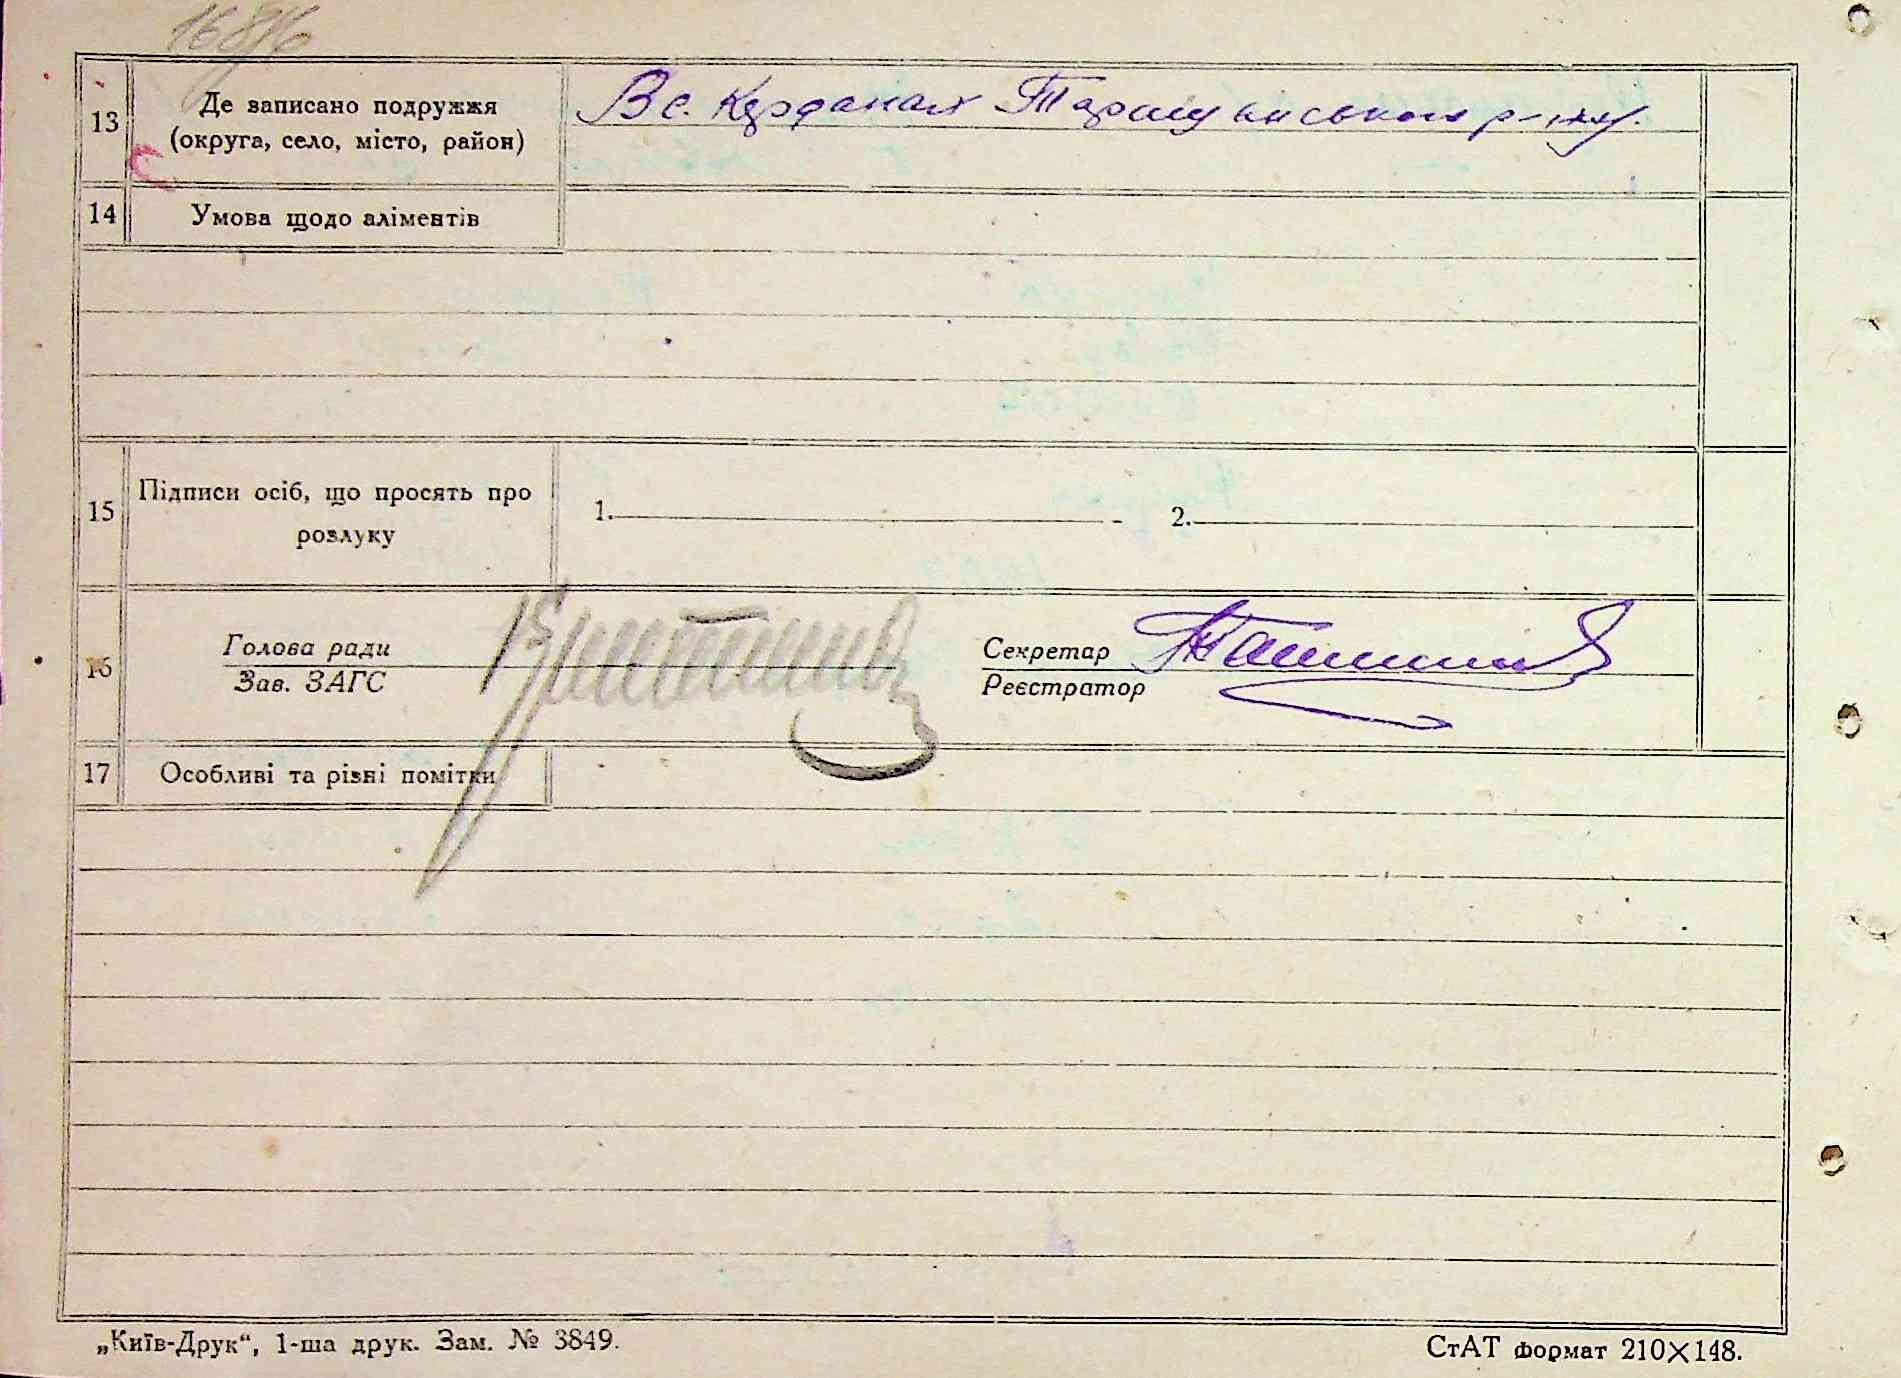 16816
13
Де записано подружжя
(округа, село, місто, район)
В с. Курданах Таращанського р-ну.
14
Умова щодо аліментів
15
Підписи осіб, що просять про
розлуку
1.
2.
16
Голова ради
Зав. ЗАГС
Секретар
Реєстратор
17
Особливі та різні помітки
„Київ-Друк“, 1-ша друк. Зам. № 3849.
СтАТ формат 210×148.